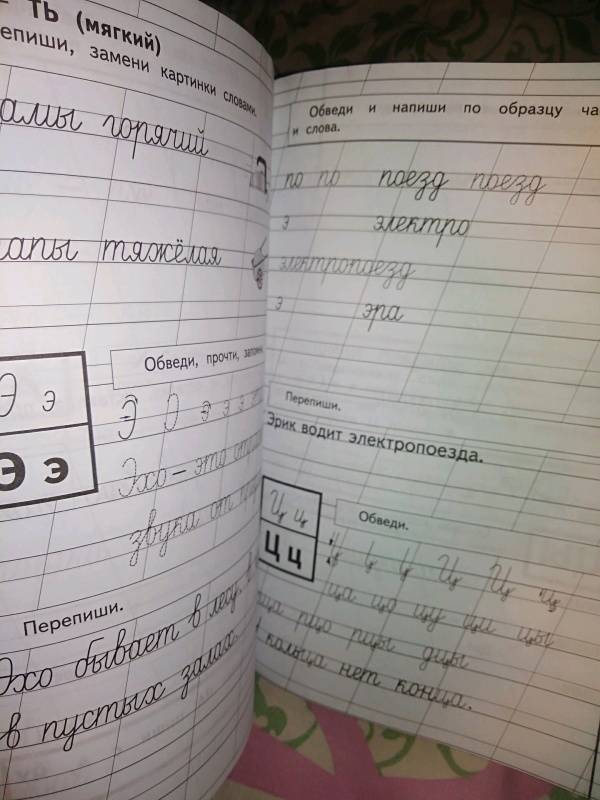 ТЬ (мягкий)
замени картинки словами.
горячий
тяжёлая
Э э
Э э
Обведи, прочти,
Э Э э э э
Эхо – это
звука от
Перепиши.
Эхо бывает в лесу,
в пустых залах.
Обведи и напиши по образцу
и слова.
по по поезд поезд
э электро
электропоезд
э эра
Перепиши.
Эрик водит электропоезда.
Ц ц
Ц ц
Обведи.
ца цо цу ци цы
рцо рцы дцы
кольца нет конца.